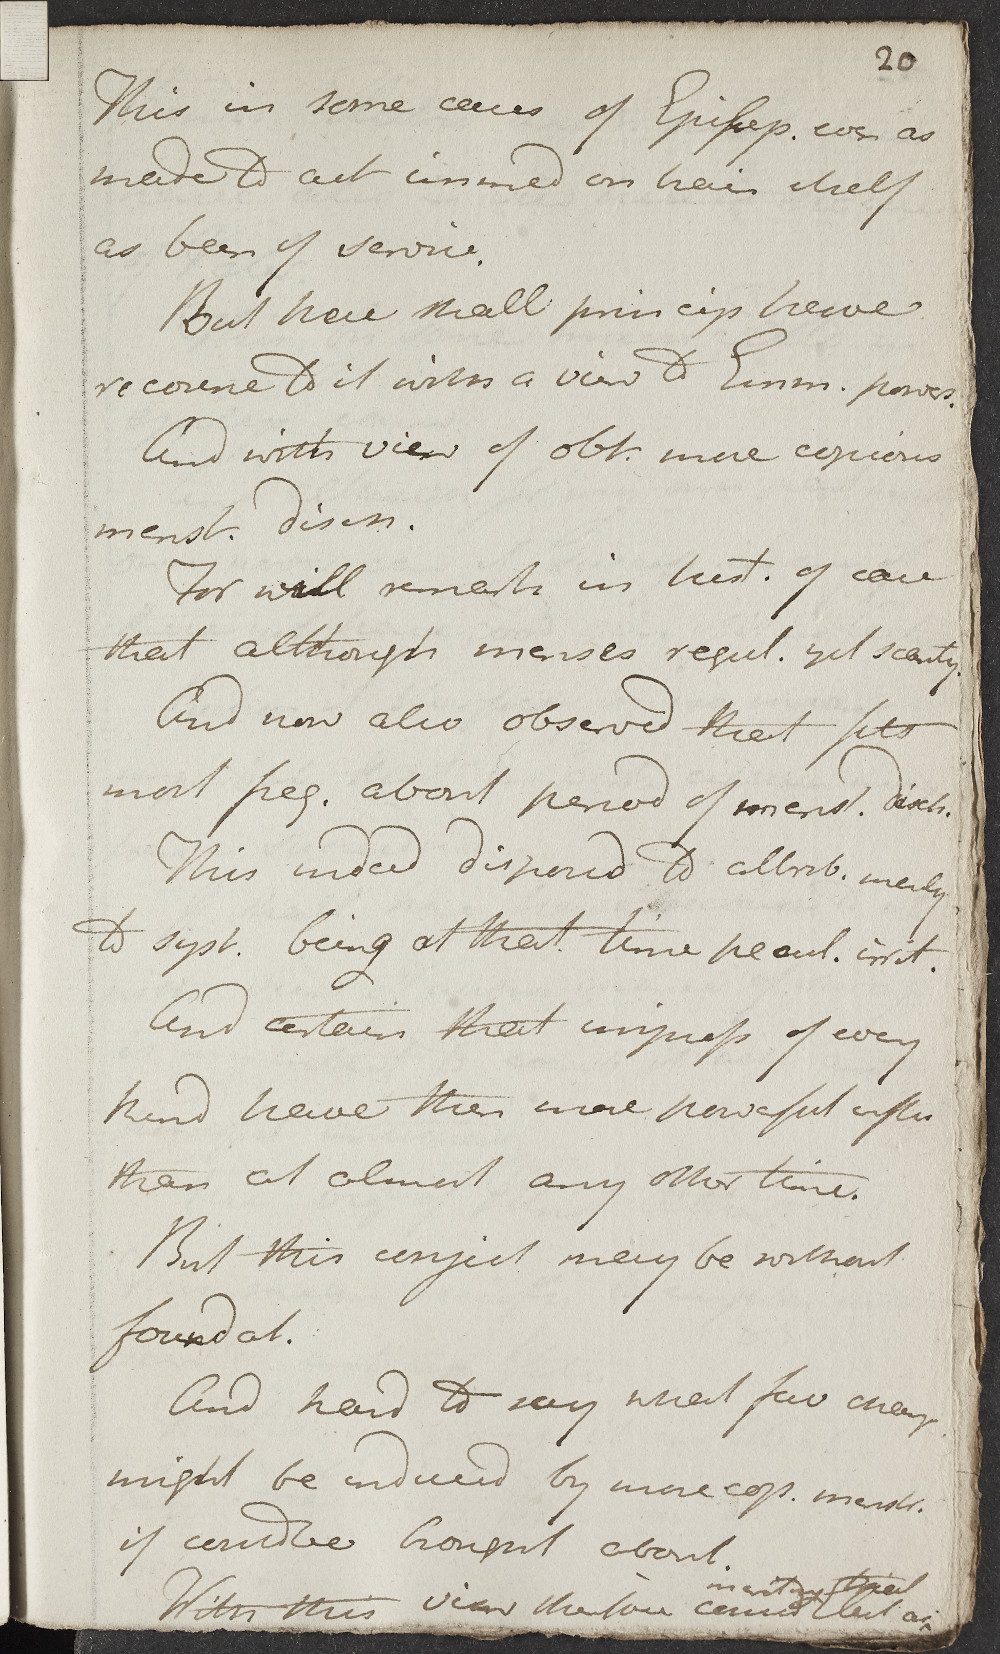 20
This in some cases of Epilep. even as
made to act immed on hair itself
as been of service.
But here shall princip have
recourse to it with a view to Emm. powers.
And with view of obt. more copious
menst. disch.
For will remark in hist. of case
that although menses regul. yet scanty.
And now also observed that fits
most freq. about period of menst. disch.
This indeed disposed to attrib. merely
to syst. being at that time pecul. irrit.
And certain that impress of every
kind have then more powerful influ
than at almost any other time.
But this conject may be without
foundat.
And hard to say what fav change
might be induced by more cop. menstr.
if could be brought about.
meriting trial
With this view therefore